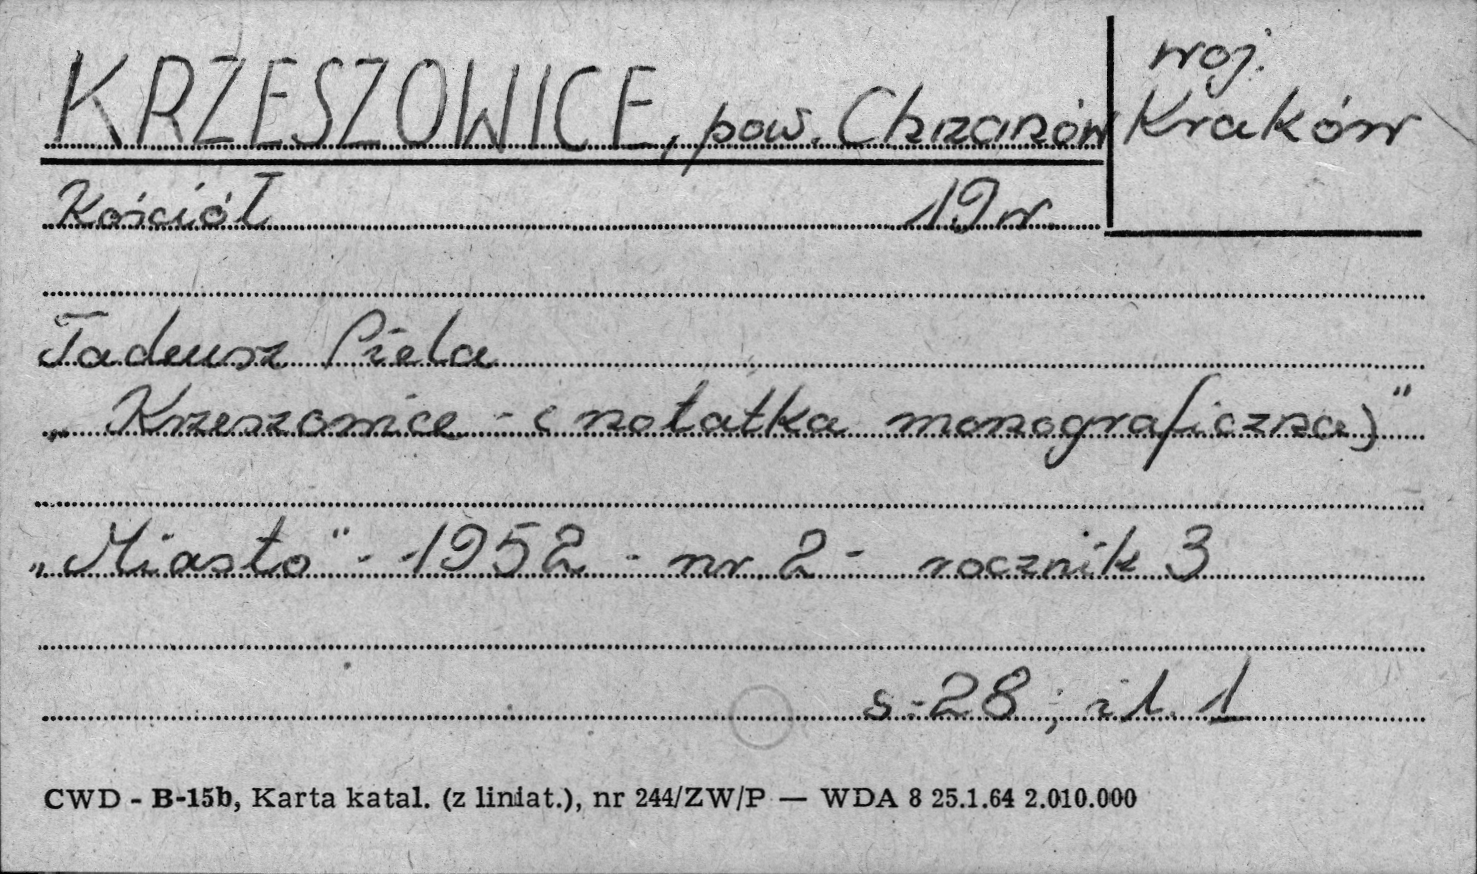 KRZESZOWICE, pow. Chrzanów
woj.
Kraków
Kościół 19 w.
Tadeusz Piela
„Krzeszowice - (notatka monograficzna)"
„Miasto" - 1952 - nr. 2 - rocznik 3
s. 28 ; il. 1
CWD - B-15b, Karta katal. (z liniat.), nr 244/ZW/P — WDA 8 25.1.64 2.010.000